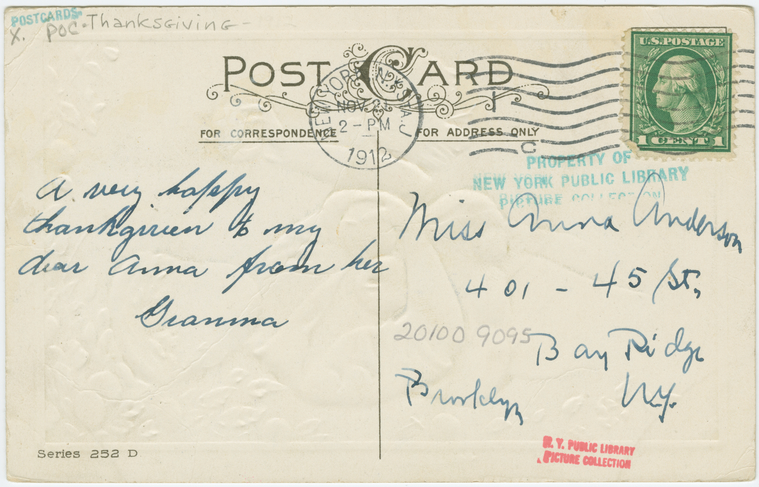 POSTCARDS
X. POC. Thanksgiving -
POST CARD
NEW YORK, N.Y. STA. J
NOV
2 - PM
1912
C
U.S. POSTAGE
1 CENT 1
FOR CORRESPONDENCE
FOR ADDRESS ONLY
PROPERTY OF
NEW YORK PUBLIC LIBRARY
PICTURE COLLECTION
A very happy
thankgiveen to my
dear Anna from her
Granma
Miss Anna Anderson
401 - 45 St,
20100 9095
Bay Ridge
Brooklyn N.Y.
Series 252 D
N. Y. PUBLIC LIBRARY
PICTURE COLLECTION